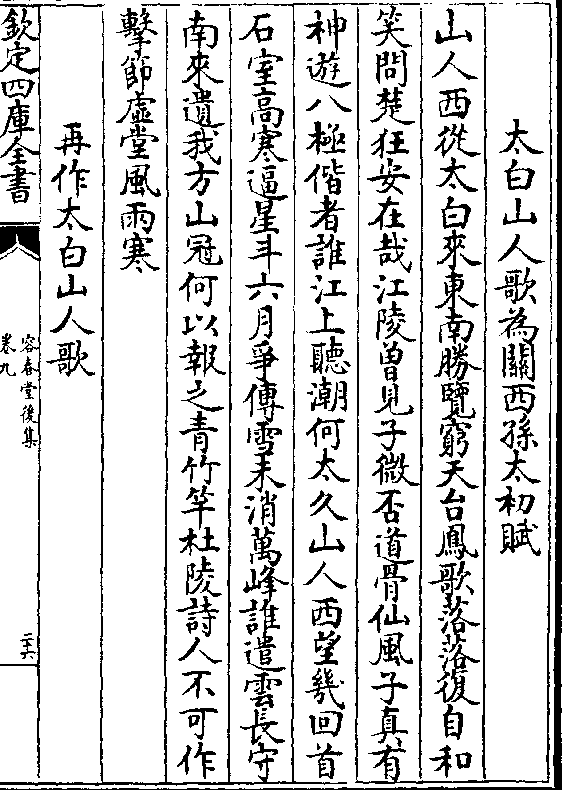 太白山人歌為關西孫太初賦
山人西從太白來東南勝覽窮天台鳳歌落落復自和
笑問楚狂安在哉江陵曽見子微否道骨仙風子真有
神遊八極偕者誰江上聽潮何太久山人西望㡬回首
石室高寒逼星斗六月爭傳雪未消萬峰誰遣雲長守
南來遺我方山冠何以報之青竹竿杜陵詩人不可作
擊節虛堂風雨寒
再作太白山人歌
欽定四庫全書
容春堂後集
卷九
二十六